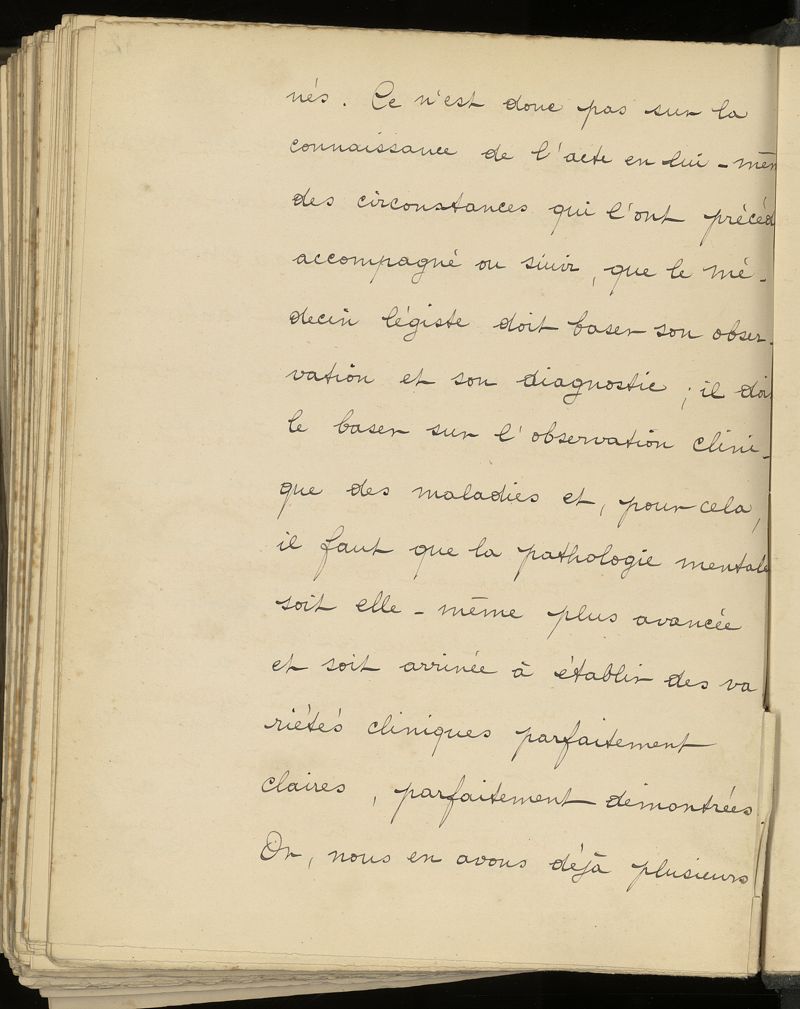 nés. Ce n'est donc pas sur la
connaissance de l'acte en lui-mêm
des circonstances qui l'ont précéd
accompagné ou suivi, que le mé-
decin légiste doit baser son obser-
vation et son diagnostic ; il doi
le baser sur l'observation clini-
que des maladies et, pour cela,
il faut que la pathologie mentale
soit elle-même plus avancée
et soit arrivée à établir des va
riétés cliniques parfaitement
claires, parfaitement démontrées
Or, nous en avons déjà plusieurs